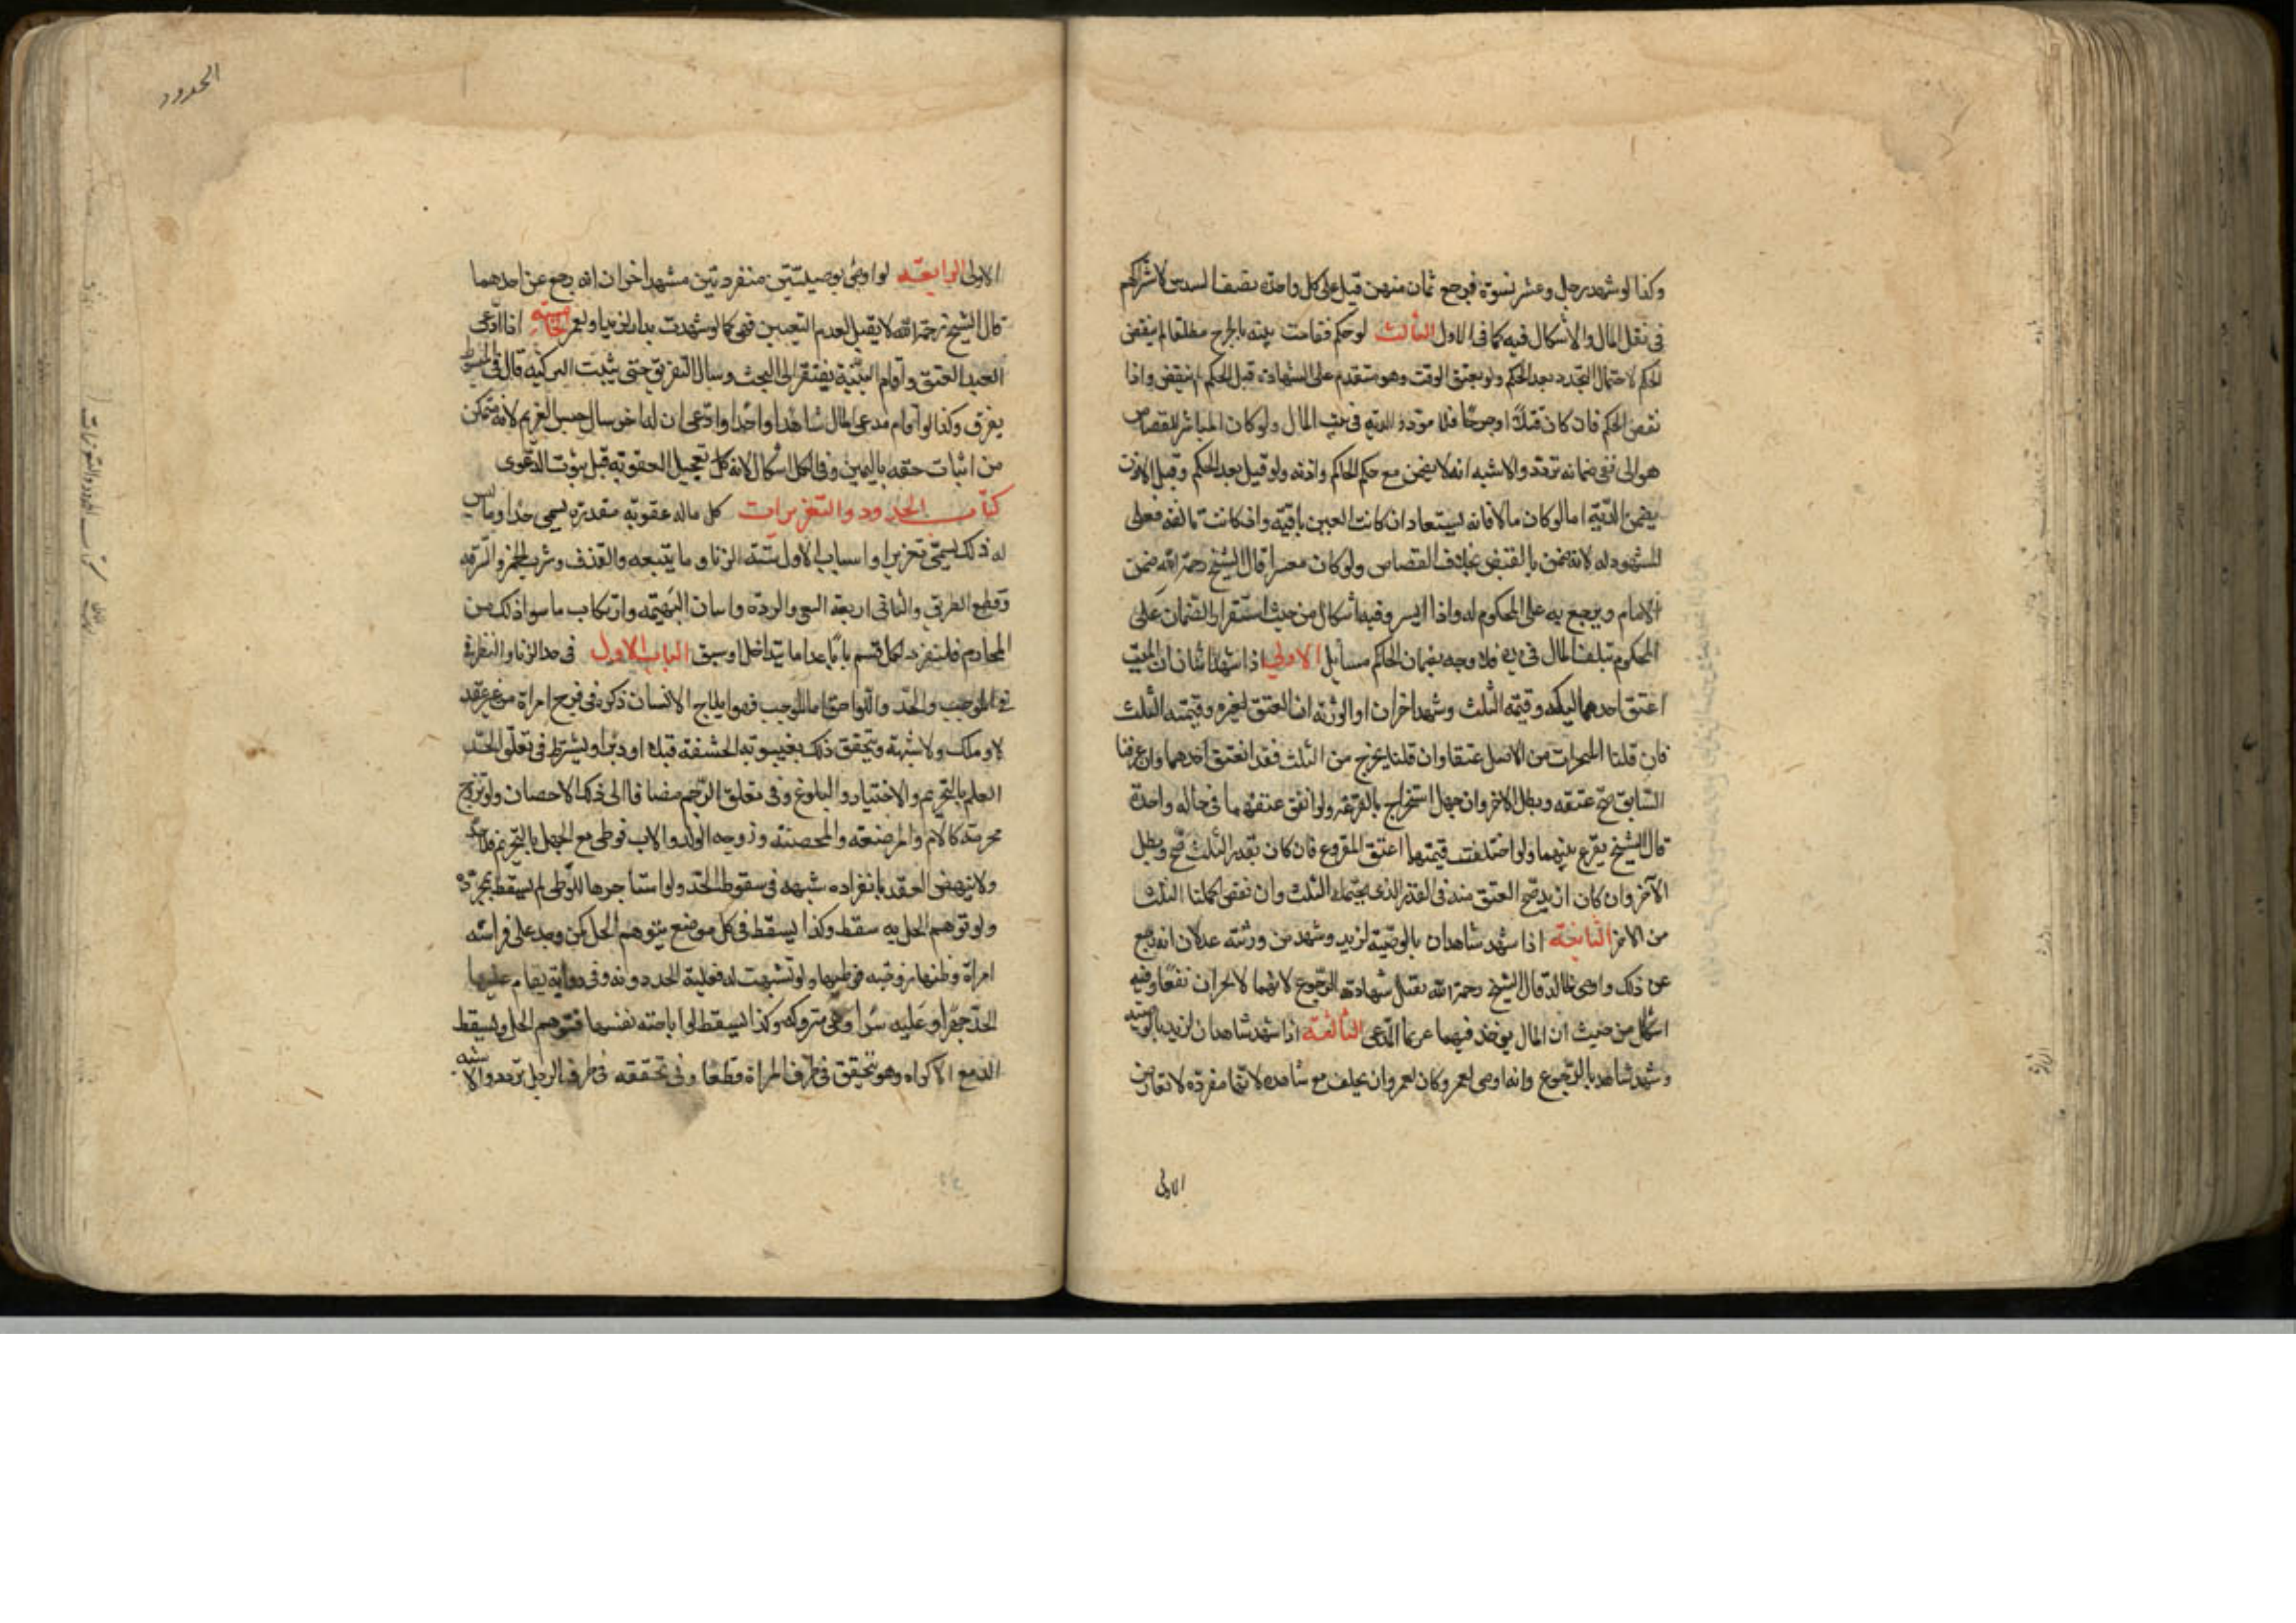 وكذا لو شهد رجل وعشر نسوة فرجع ثمان منهن قيل على كل واحدة نصف السدس لاشتراكهم
فى نقل المال والاشكال فيه كما فى الاول الثالث لو حكم فقامت بينه بالجرح مطلقا لم ينقض
الحكم لاحتمال التجدد بعد الحكم ولو تعين الوقت وهو متقدم على الشهادة قبل الحكم نقض واذا
نقض الحكم فان كان قتلا او جرحا فلا قود والديه فى بيت المال ولو كان المباشر للقصاص
هو الولى ففى ضمانه تردد والاشبه انه لا يضمن مع حكم الحاكم واذنه ولو قتل بعد الحكم وقبل الاذن
يضمن الديّة اما لو كان مالا فانه يستعاد ان كانت العين باقية وان كانت تالفه فعلى
المشهود له لانه ضمن بالقبض بخلاف القصاص ولو كان معسرا قال الشيخ رحمه الله ضمن
الامام ويرجع به على المحكوم له واذا ايسر وفيه اشكال من حيث استقرار الضمان على
المحكوم بتلف المال فى يده فلا وجه بضمان الحاكم مسايل الاولى اذا شهد اثنان ان الميت
اعتق احد مماليكه وقيمته الثلث وشهد اخران او الورثة ان العتق لغيره وقيمته الثلث
فان قلنا المنجزات من الاصل عتقا وان قلنا يخرج من الثلث فقد انعتق احدهما وان عرفنا
السّابق صح عتقه وبطل الاخر وان جهل استخراج بالقرعه ولو اتفق عتقهما فى حاله واحدة
قال الشيخ يقرع بينهما ولو اختلفت قيمتهما اعتق المقروع فان كان بقدر الثلث صح وبطل
الآخر وان كان ازيد صح العتق منه فى القدر الذى يحتمله الثلث وان نقص اكملنا الثلث
من الاخر الثانية اذا شهد شاهدان بالوصيّة لزيد وشهد من ورثته عدلان انه رجع
عن ذلك واوصى لخالد قال الشيخ رحمه الله يقبل شهادة الرّجوع لانهما لا يجران نفعا وفيه
اشكال من حيث ان المال يوخذ فيهما غرما المدعى الثالثة اذا شهد شاهدان لزيد بالوصية
وشهد شاهد بالرّجوع وانه اوصى لعمرو كان لعمرو ان يحلف مع شاهده لانّها مفردة لا تعارض
الاولى
الحدود
الاولى الرابعة لو اوصى بوصيتين منفردتين فشهد اخران انه رجع عن احدهما
قال الشيخ رحمه الله لا يقبل لعدم التعيين فهى كما لو شهدت بدار لزيد او لعمرو الخامسة اذا ادّعى
العبد العتق واقام البيّنة يفتقر الى البحث وسال التفريق حتى يثبت التزكيه قال فى المبسوط
يفرق وكذا لو اقام مدعى المال شاهدا واحدا وادّعى ان له اخر وسال حبس الغريم لانه متمكن
من اثبات حقه باليمين وفى الكل اشكال لانه تعجيل العقوبه قبل ثبوت الدّعوى
كتاب الحدود والتعزيرات كل ماله عقوبة مقدرة يسمى حدا وما ليس
له ذلك يسمى تعزيرا واسباب الاول ستة الزنا وما يتبعه والقذف وشرب الخمر والسّرقه
وقطع الطريق والثانى اربعة البغى والردّة واتيان البهيمه وارتكاب ما سوا ذلك من
المحارم فلنفرد لكل قسم بابا عدا ما يتداخل او سبق الباب الاول فى حد الزنا والنظر
فى الموجب والحدّ واللواحق اما الموجب فهو ايلاج الانسان ذكره فى فرج امراة من غير عقد
لا وملك ولا شبهة ويتحقق ذلك بغيبوبة الحشفة قبلا او دبرا ويشترط فى تعلق الحدّ
العلم بالتحريم والاختيار والبلوغ وفى تعلق الرّجم مضافا الى ذلك الاحصان ولو تزوج
محرمة كالام والمرضعة والمحصنة وزوجه الولد والاب فوطى مع الجهل بالتحريم فلا حد
ولا ينهض العقد بانفراده شبهه فى سقوط الحدّ ولو استاجرها للوطى لم يسقط بمجرّده
ولو توهم الحل به سقط وكذا يسقط فى كل موضع يتوهم الحل كمن وجد على فراشه
امراة وظنها زوجته فوطيها ولو تشبهت له فعليها الحد دونه وفى رواية يقام عليها
الحدّ جهرا وعليه سرا وهى متروكه وكذا يسقط لو اباحته نفسها فتوهم الحل ويسقط
الحد مع الاكراه وهو يتحقق فى طرف المراة قطعا وفى تحققه فى طرف الرجل تردد والاشبه